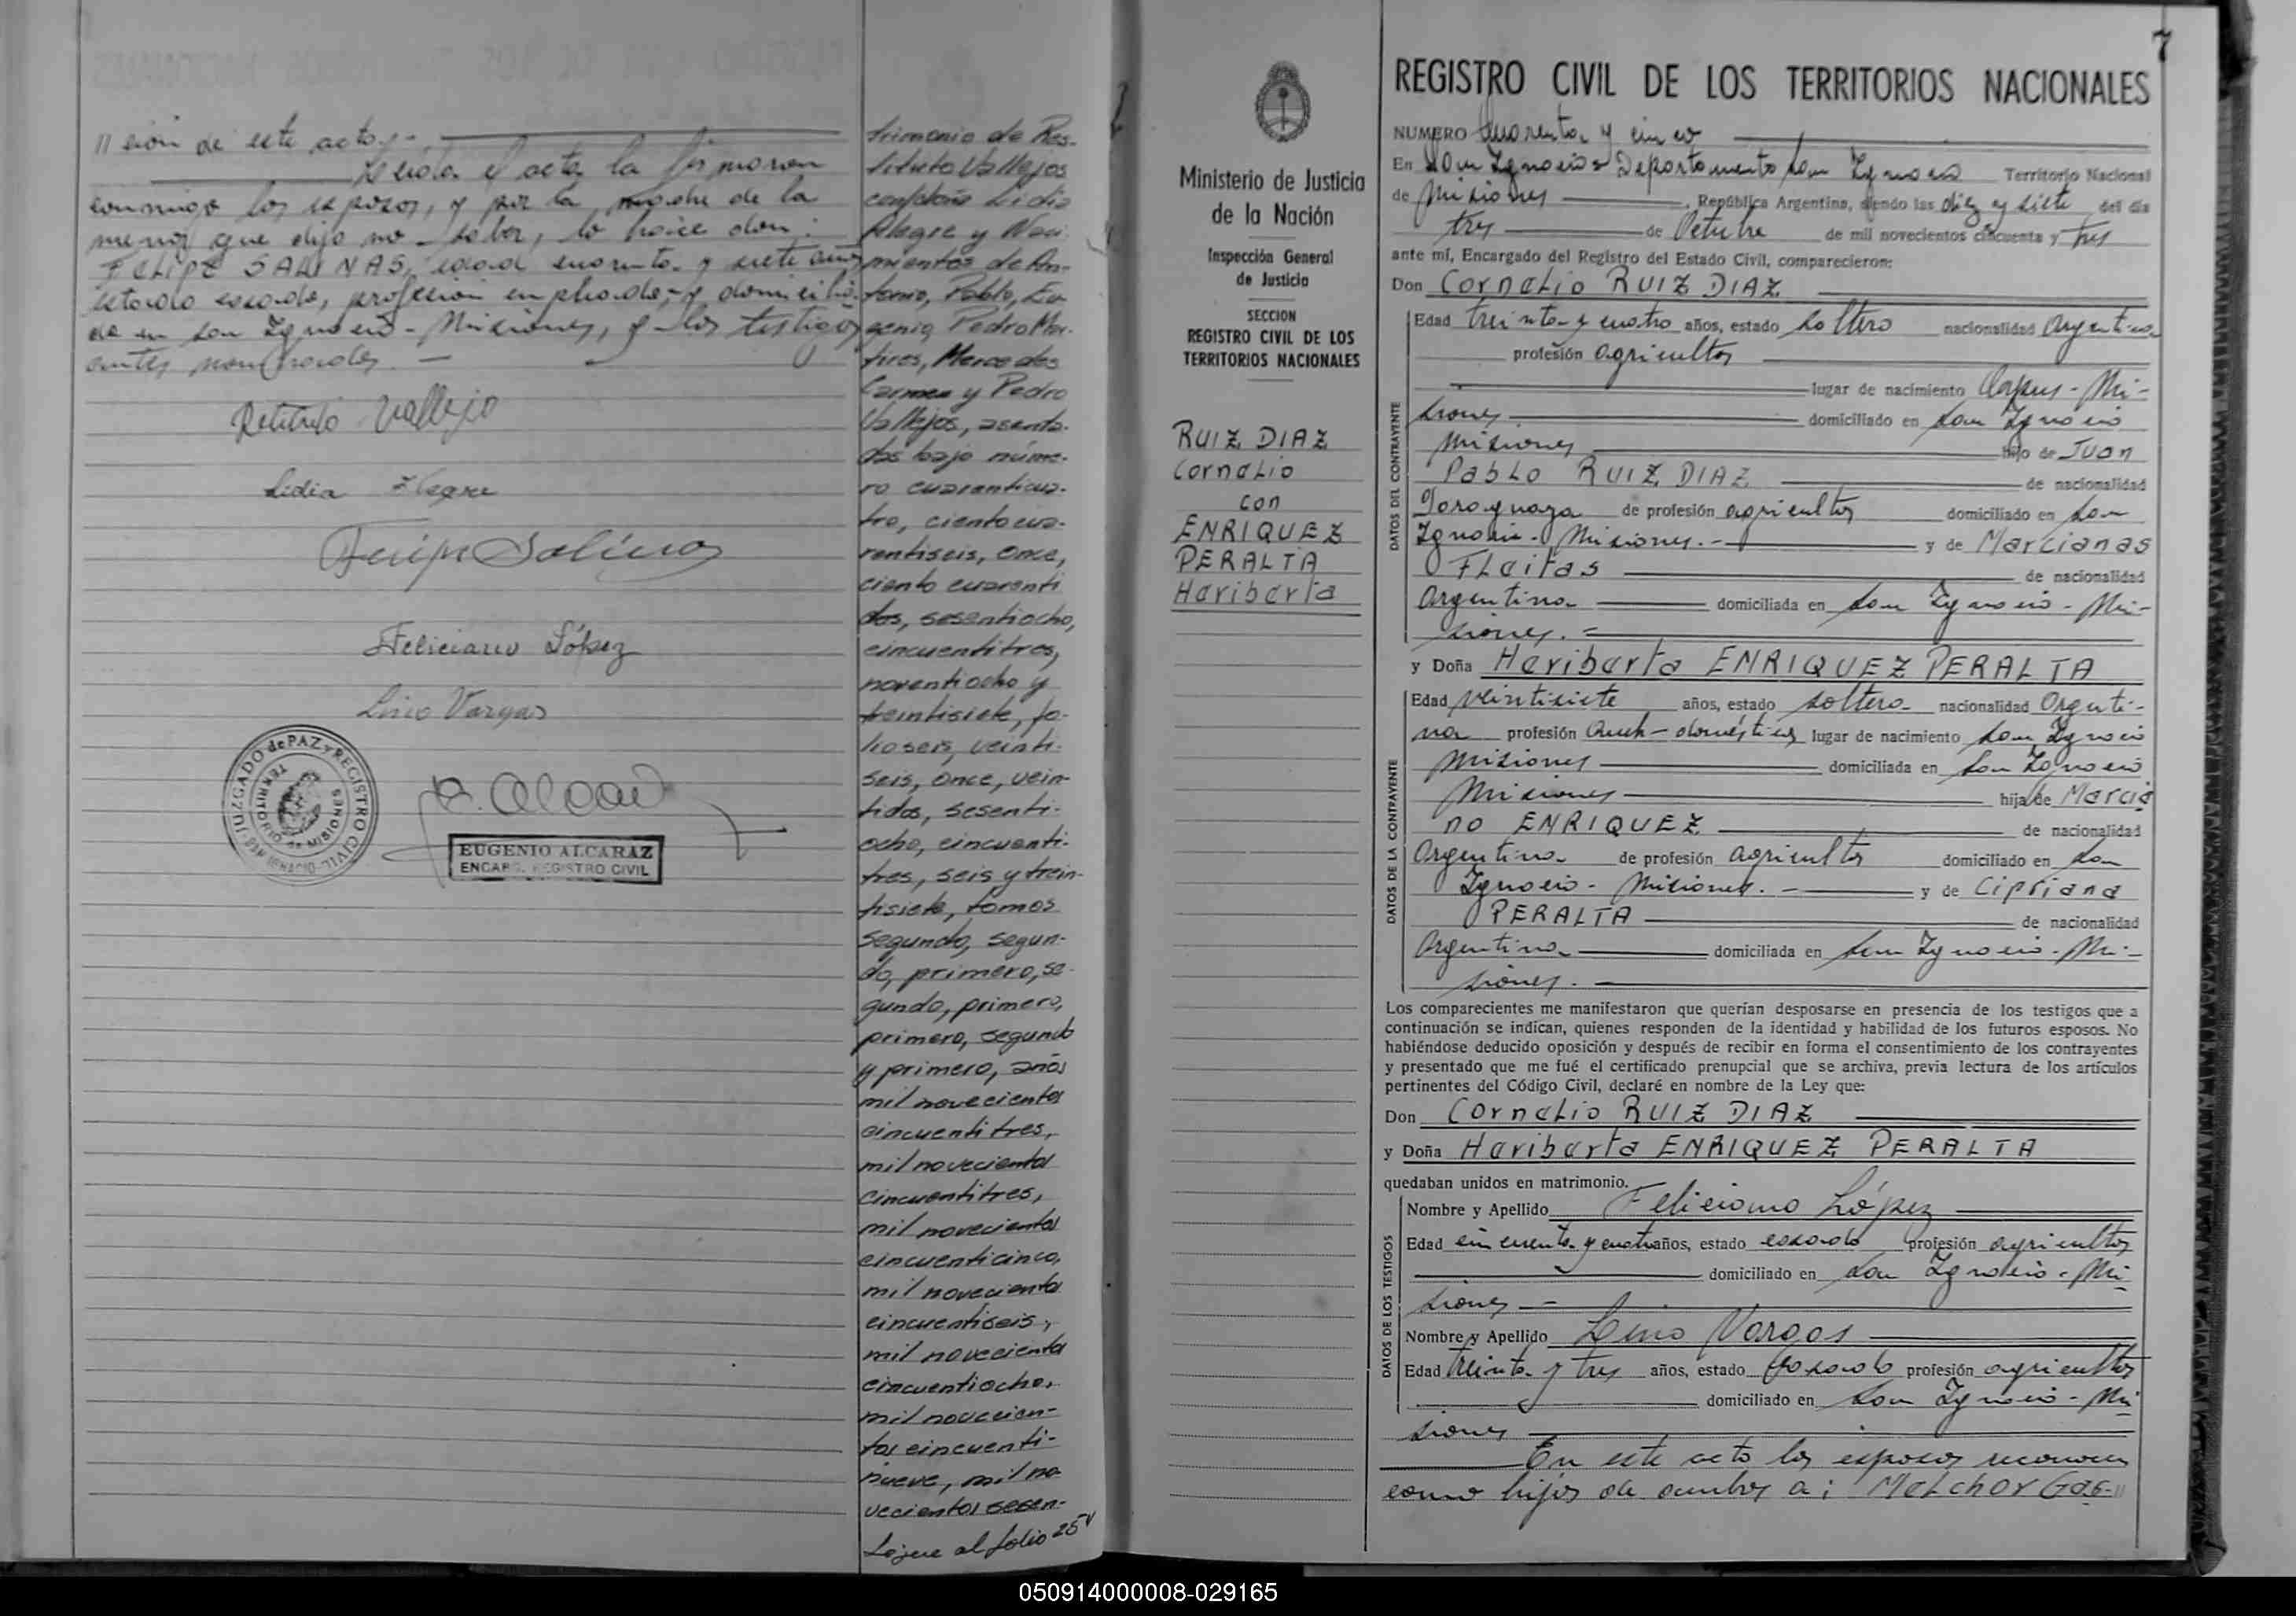 // ción de este acto.-
Leída el acta la firmaron
conmigo los esposos, y por la madre de la
menor que dijo no saber, lo hace don:
FELIPE SALINAS, edad cuarenta y siete años
estado casado, profesión empleado, y domicilia-
do en San Ignacio - Misiones, y los testigos
antes nombrados. —
Retituto Vallejo
Lidia Alegre
Felipe Salinas
Feliciano López
Lino Vargas
JUZGADO de PAZ y REGISTRO CIVIL
SAN IGNACIO
TERRITORIO de MISIONES
EUGENIO ALCARAZ
ENCARG. REGISTRO CIVIL
trimonio de Res-
tituto Vallejos
con doña Lidia
Alegre y Naci-
mientos de An-
tonio, Pablo, Eu
genia, Pedro Mar-
tires, Mercedes
Carmen y Pedro
Vallejos, asenta-
dos bajo núme-
ro cuarenticua-
tro, ciento cua-
rentiseis, once,
ciento cuarenti
dos, sesentiocho,
cincuentitres,
noventiocho y
treintisiete, fo-
lio seis, veinti-
seis, once, vein-
tidos, sesenti-
ocho, cincuenti-
tres, seis y trein-
tisiete, tomos
segundo, segun-
do, primero, se-
gundo, primero,
primero, segundo
y primero, años
mil novecientos
cincuentitres,
mil novecientos
cincuentitres,
mil novecientos
cincuenticinco,
mil novecientos
cincuentiseis,
mil novecientos
cincuentiocho,
mil novecien-
tos cincuenti-
nueve, mil no-
vecientos sesen-
Sigue al folio 25v
Ministerio de Justicia
de la Nación
Inspección General
de Justicia
SECCION
REGISTRO CIVIL DE LOS
TERRITORIOS NACIONALES
RUIZ DIAZ
Cornelio
con
ENRIQUEZ
PERALTA
Heriberta
7
REGISTRO CIVIL DE LOS TERRITORIOS NACIONALES
NUMERO Cuarenta y cinco
En San Ignacio Departamento San Ignacio Territorio Nacional
de Misiones República Argentina, siendo las diez y siete del día
tres de Octubre de mil novecientos cincuenta y tres
ante mí, Encargado del Registro del Estado Civil, comparecieron:
Don Cornelio RUIZ DIAZ
DATOS DEL CONTRAYENTE
Edad treinta y cuatro años, estado soltero nacionalidad Argentina
profesión agricultor
lugar de nacimiento Corpus - Mi-
siones domiciliado en San Ignacio
Misiones hijo de Juan
Pablo RUIZ DIAZ de nacionalidad
Paraguaya de profesión agricultor domiciliado en San
Ignacio - Misiones.- y de Marcianas
Fleitas de nacionalidad
Argentina domiciliada en San Ignacio - Mi-
siones. -
y Doña Heriberta ENRIQUEZ PERALTA
DATOS DE LA CONTRAYENTE
Edad veintisiete años, estado soltera nacionalidad Argenti-
na profesión Queh-domésticos lugar de nacimiento San Ignacio
Misiones domiciliada en San Ignacio
Misiones hija de Marcia
no ENRIQUEZ de nacionalidad
Argentina de profesión agricultor domiciliado en San
Ignacio - Misiones. - y de Cipriana
PERALTA de nacionalidad
Argentina domiciliada en San Ignacio - Mi-
siones. -
Los comparecientes me manifestaron que querían desposarse en presencia de los testigos que a
continuación se indican, quienes responden de la identidad y habilidad de los futuros esposos. No
habiéndose deducido oposición y después de recibir en forma el consentimiento de los contrayentes
y presentado que me fué el certificado prenupcial que se archiva, previa lectura de los artículos
pertinentes del Código Civil, declaré en nombre de la Ley que:
Don Cornelio RUIZ DIAZ
y Doña Heriberta ENRIQUEZ PERALTA
quedaban unidos en matrimonio.
DATOS DE LOS TESTIGOS
Nombre y Apellido Feliciano López
Edad cincuenta y cuatro años, estado casado profesión agricultor
domiciliado en San Ignacio - Mi-
siones -
Nombre y Apellido Lino Vargas
Edad treinta y tres años, estado casado profesión agricultor
domiciliado en San Ignacio - Mi-
siones
En este acto los esposos reconocen
como hijos de ambos a: Melchor Gas-//
050914000008-029165